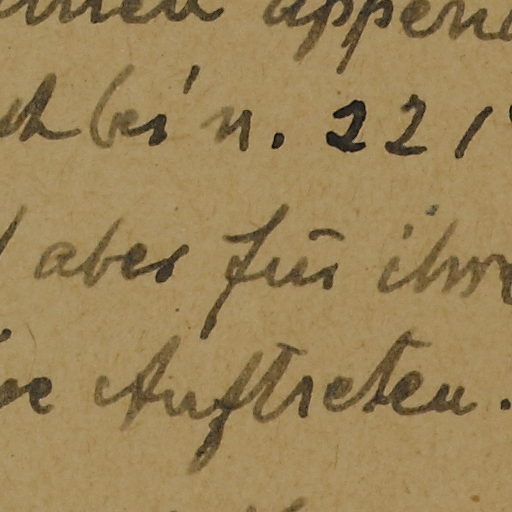 append
bei n. 221
aber für ihre
Auftreten.